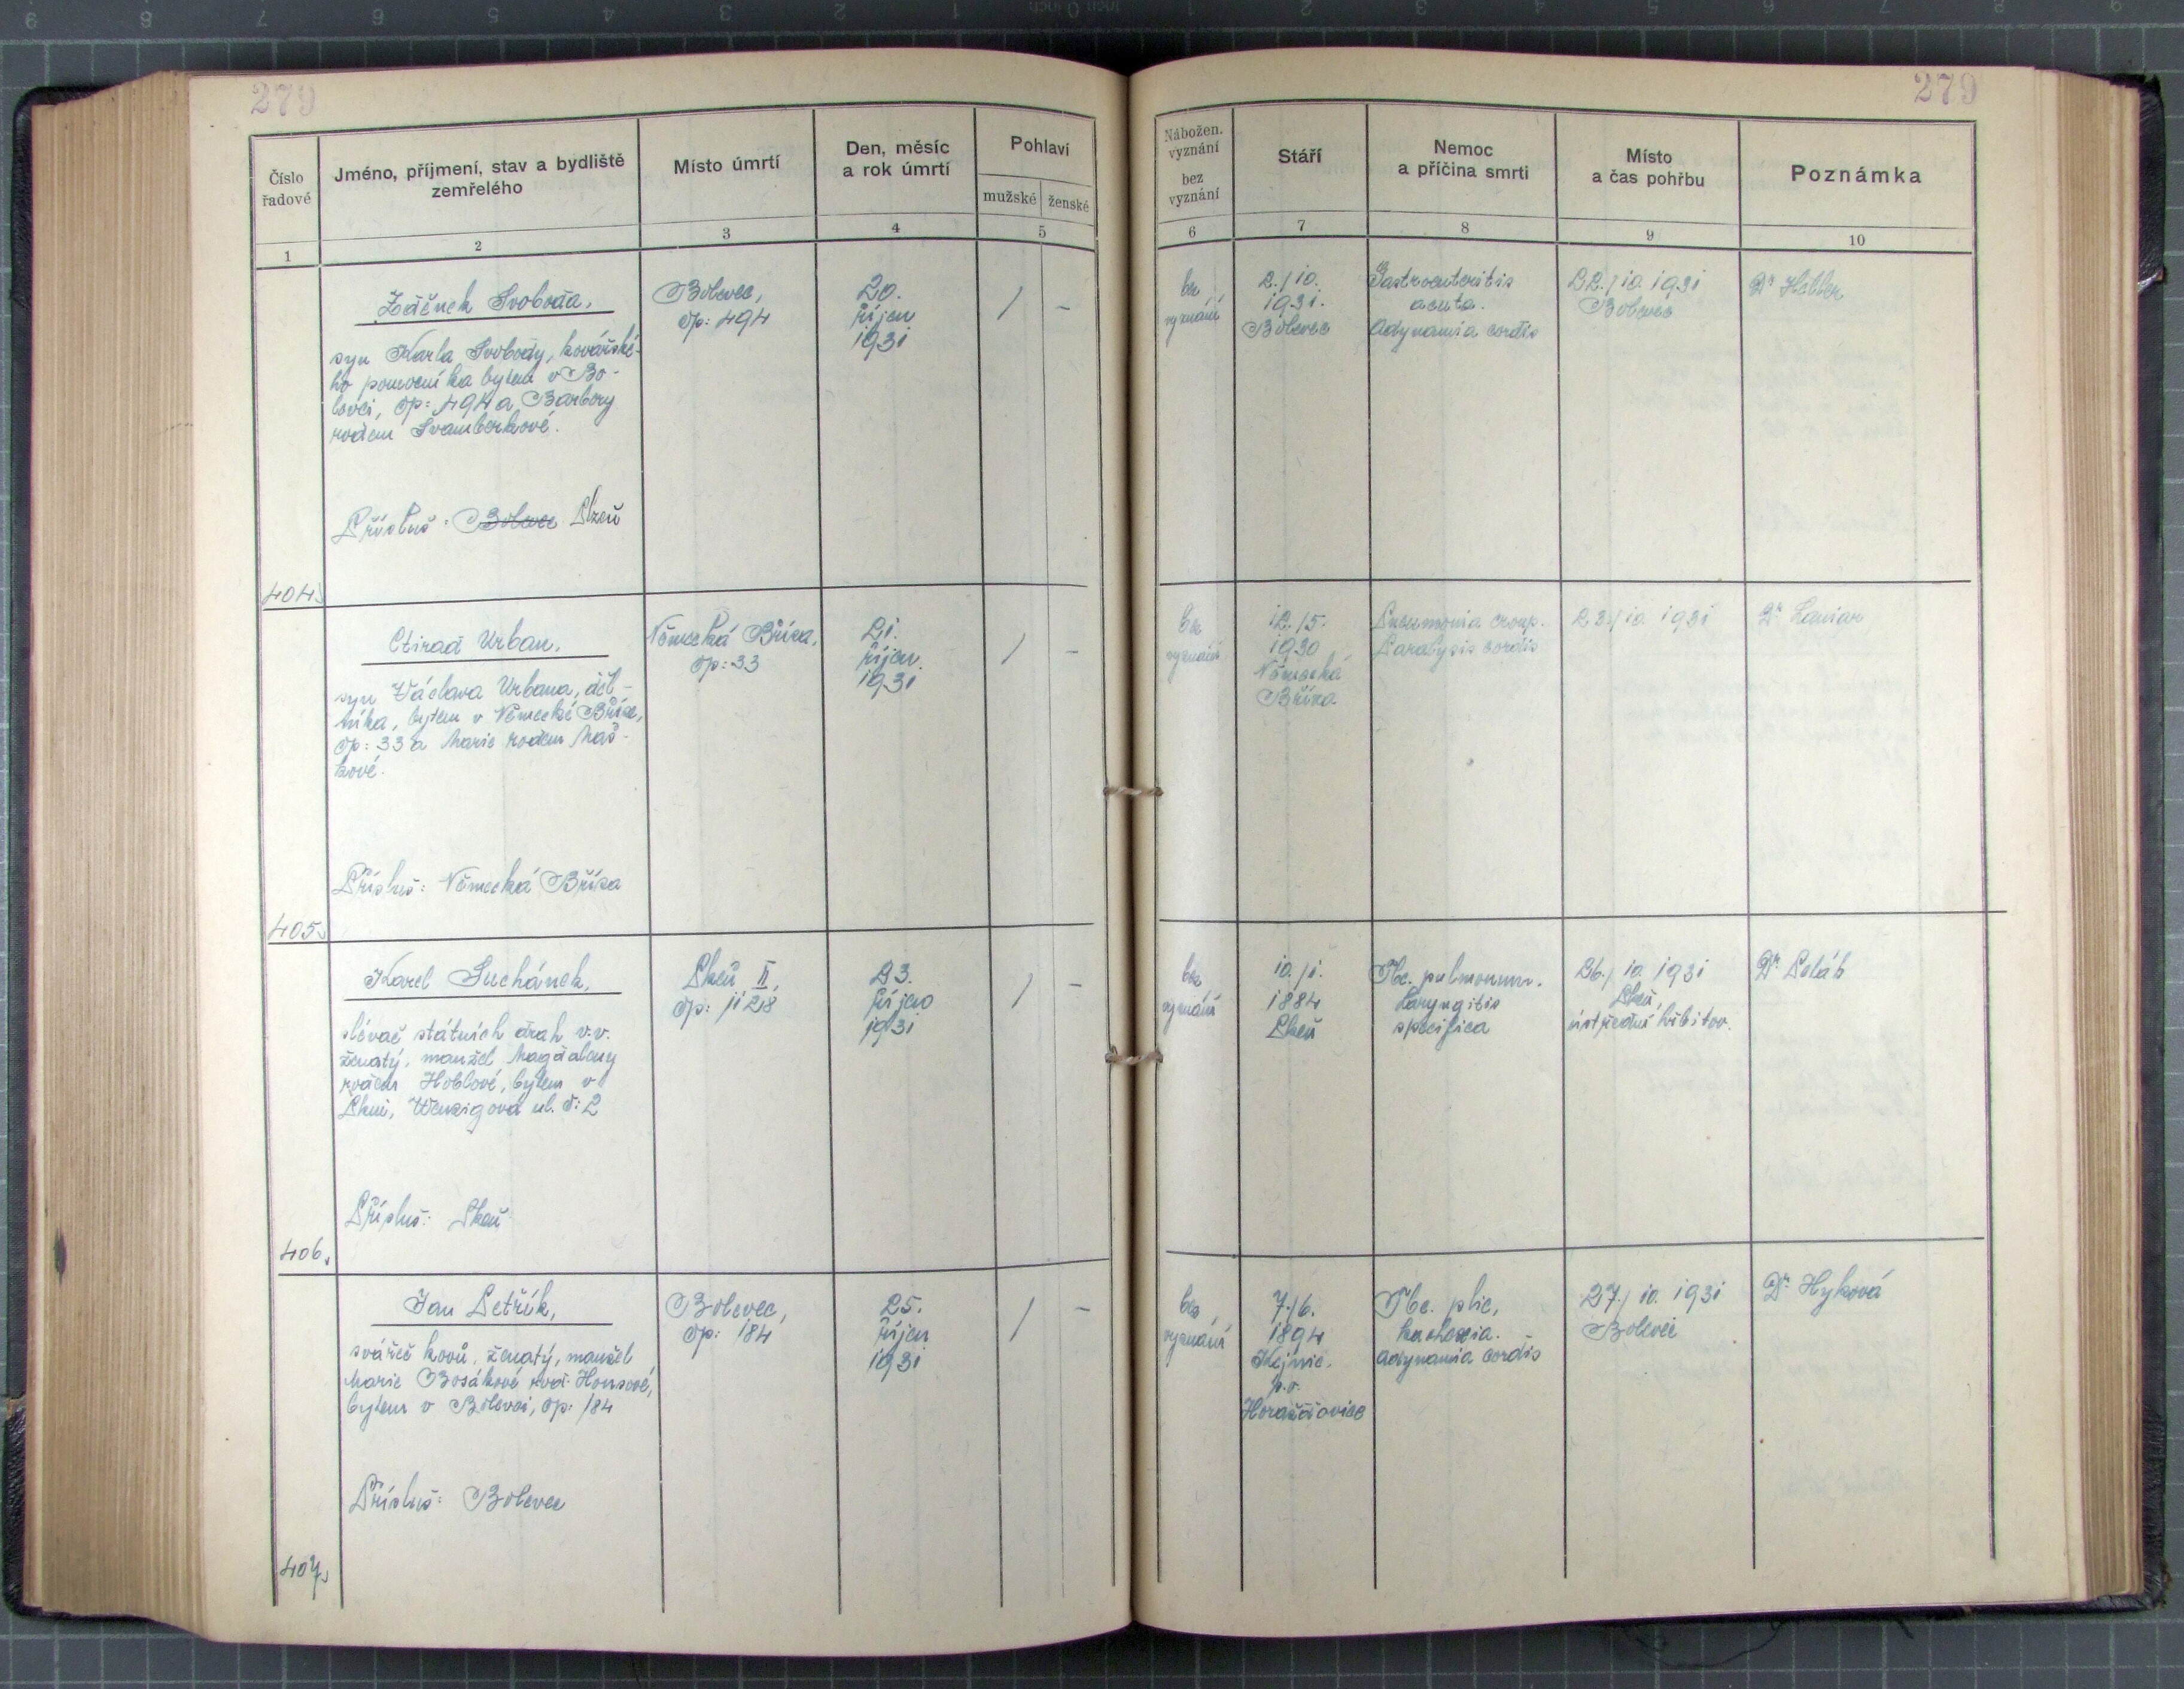 279
279
Číslo
řadové
Jméno, příjmení, stav a bydliště
zemřelého
Místo úmrtí
Den, měsíc
a rok úmrtí
Pohlaví
mužské
ženské
Nábožen.
vyznání
bez
vyznání
Stáří
Nemoc
a příčina smrti
Místo
a čas pohřbu
Poznámka
1
2
3
4
5
6
7
8
9
10
404.
Zdeněk Svoboda,
syn Karla Svobody, kovářské-
ho pomocníka bytem v Bo-
levci, čp: 494 a Barbory
rodem Švamberkové.
Přísluš: Bolevec Plzeň
Bolevec,
čp: 494
20.
říjen
1931
/
-
bez
vyznání
2./10.
1931.
Bolevec
Gastroenteritis
acuta.
Adynamia cordis
22./10. 1931
Bolevec
Dr
405.
Ctirad Urban,
syn Václava Urbana, děl-
níka, bytem v Německé Bříze,
čp: 33 a Marie rodem Maš-
kové.
Přísluš: Německá Bříza
Německá Bříza,
čp: 33
21.
říjen
1931
/
-
bez
vyznání
12./5.
1930
Německá
Bříza
Pneumonia croup.
Paralysis cordis
23./10. 1931
Dr
406.
Karel Suchánek,
slévač státních drah v.v.
ženatý, manžel Magdaleny
rodem Hoblové, bytem v
Plzni, Wenzigova ul. č: 2
Přísluš: Plzeň
Plzeň II,
čp: 1128
23.
říjen
1931
/
-
bez
vyznání
10./1.
1884
Plzeň
Tbc. pulmonum.
Laryngitis
specifica
26./10. 1931
Plzeň,
ústřední hřbitov.
Dr
407.
Jan Petřík,
svářeč kovů, ženatý, manžel
Marie Bosákové rod. Honsové,
bytem v Bolevci, čp: 184
Přísluš: Bolevec
Bolevec,
čp: 184
25.
říjen
1931
/
-
bez
vyznání
7./6.
1894
Kejnic.
p.o.
Horažďovice
Tbc. plic,
kachexia.
Adynamia cordis
27./10. 1931
Bolevec
Dr Hyková